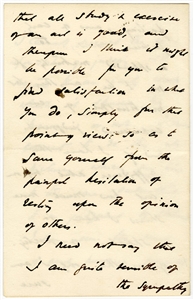 that all study & exercise
of an art is good, and
therefore I think it might
be possible for you to
find satisfaction in what
You do, simply from this
point of view; so as to
save yourself from the
painful hesitation of
resting upon the opinion
of others.
I need not say that
I am quite sensible of
the sympathy